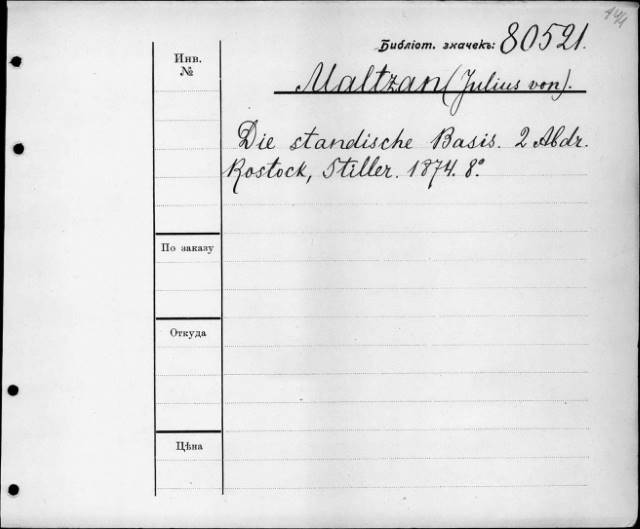 Библіот. значекъ: 80521.
Инв.
№
Maltzan (Julius von).
Die standische Basis. 2 Abdr.
Rostock, Stiller. 1874. 8°.
По заказу
Откуда
Цѣна